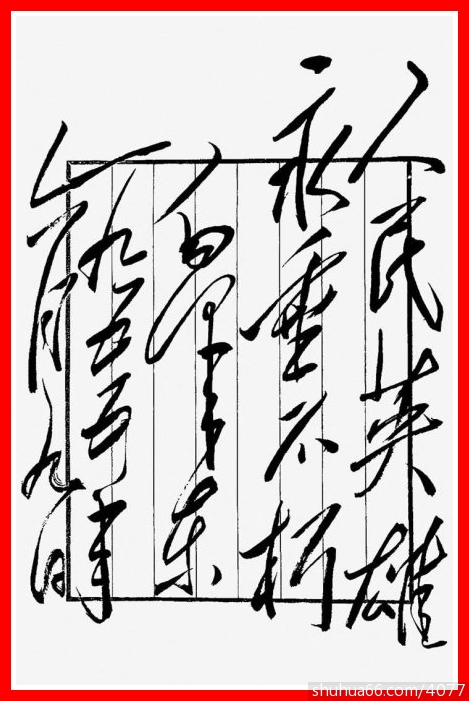 人民英雄
永垂不朽
毛泽东
一九五五年
六月九日
shuhua66.com/4077